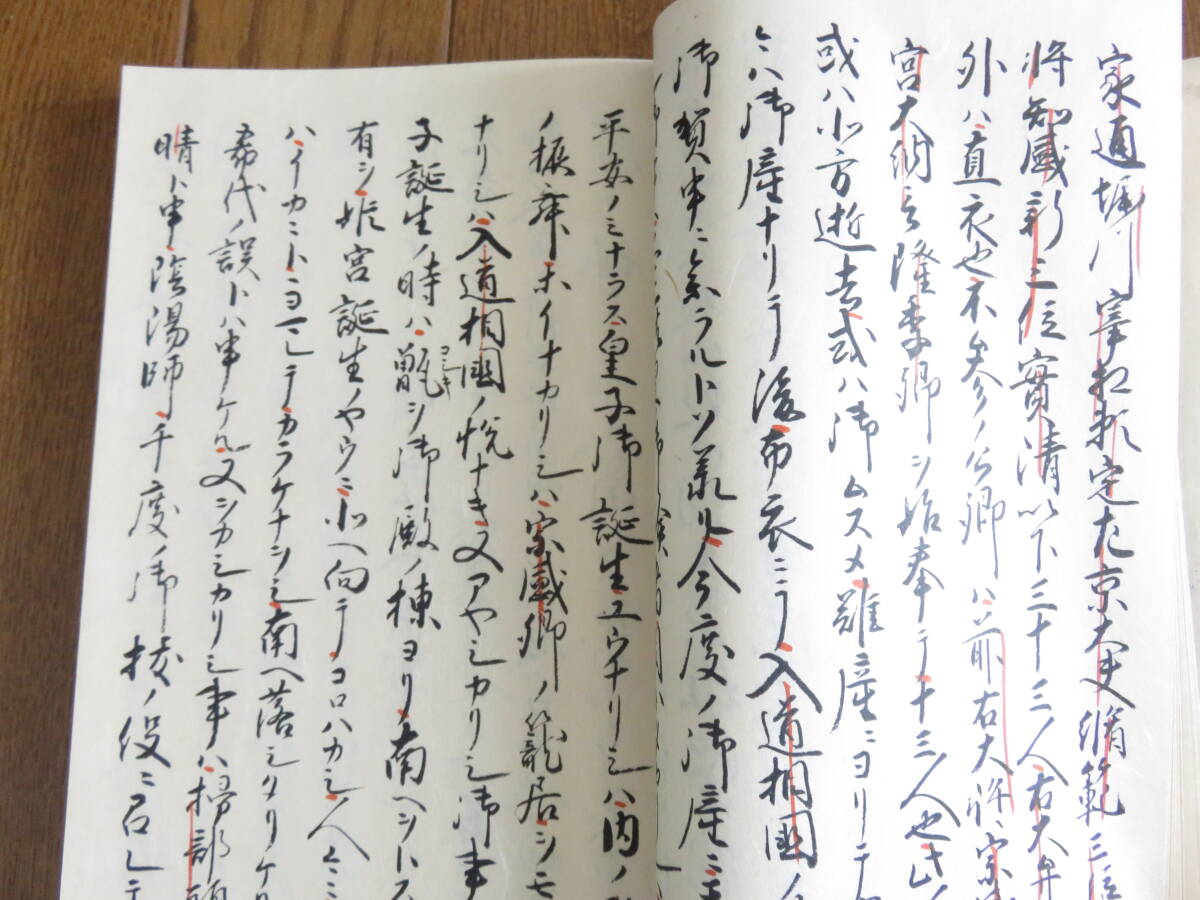 家通堀川宰相頼定左京大夫脩範三位
将知盛新三位實清以下三十三人右大弁
外ハ直衣也不参ノ公卿ハ前右大将宗
宮大納言隆季卿ヲ始奉テ十三人也此
或ハ北方逝去或ハ御ムスメ難産ニヨリテ
ミハ御産ナリテ後布衣ニテ入道相國ノ
御賀申ニ参ラルトソ承ル今度ノ御産ニ
平安ノミナラス皇子御誕生ユウナリシハ内ノ
ノ振舞ホイナカリシハ宗盛卿ノ籠居シモ
ナリシハ入道相國ノ悦ナキ又アヤシカリシ御事
子誕生ノ時ハ甑ヲ御殿ノ棟ヨリ南ヘヲトス
コシキ
有シ姫宮誕生ノヤウニ北ヘ向テコロハカシ
ハイカニトヨマレテカラケナシ南ヘ落シタリケ
希代ノ誤トハ申ケル又ヲカシカリシ事ハ掃部頭
晴ト申陰陽師千度ノ御祓ノ役ニ召レテ